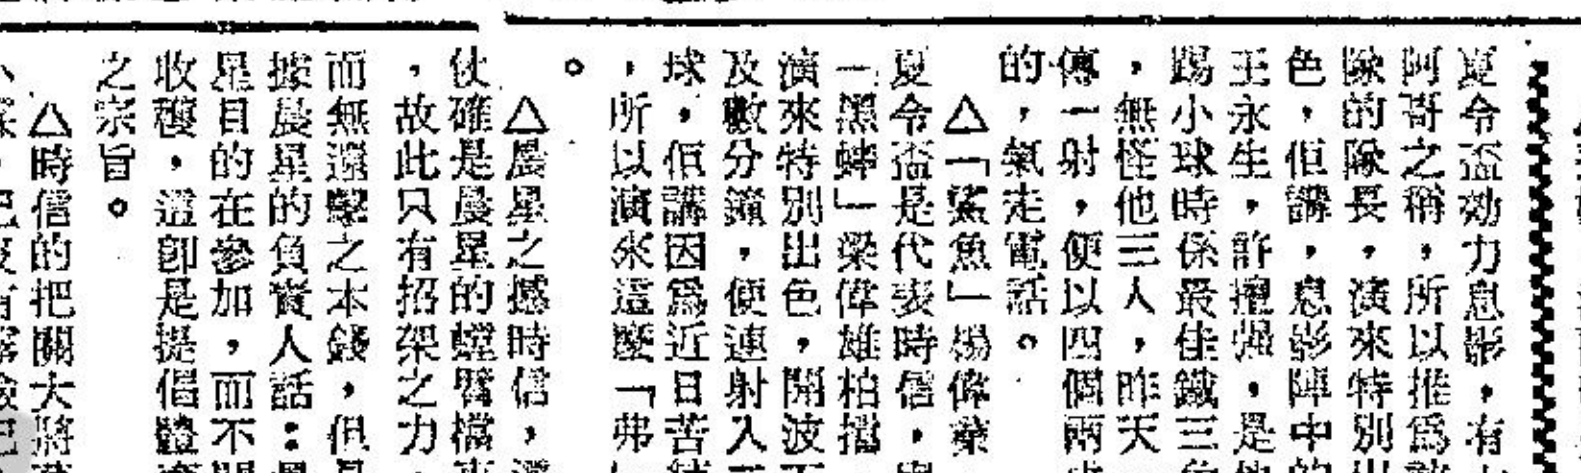 夏令盃効力息影，有
阿哥之稱，所以推爲
隊的隊長，，演來特別出
色，但講，息影陣中的
王永生，許擅焗，是
踢小球時係最佳鐵三
，無怪他三人，昨天
傳一射，便以四個兩
的，氣走電話。
△「鯊魚」楊偉
夏令盃是代表時信，
「黑蜂」梁偉雄柏擋
演來特別出色，開波
及數分鐘，便連射入
球，佢講因爲近日苦
，所以演來這麽「弗
。
△晨星之撼時信，
伏確是晨星的螳臂擋
，故此只有招架之力，
而無還擊之本錢，但
據晨星的負責人話：
星目的在參加，而不
收穫，這卽是提倡體
之宗旨。
△時信的把關大將